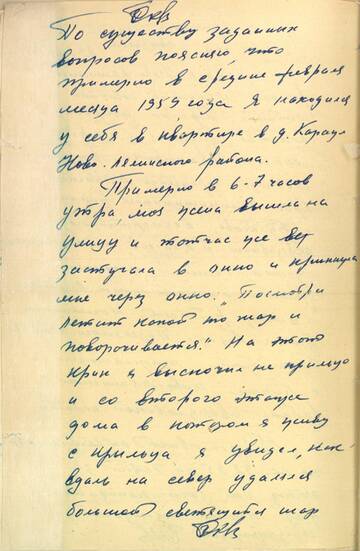 По существу заданных
вопросов поясняю что
примерно в средине февраля
месяца 1959 года я находился
у себя в квартире в д. Караул
Ново-Лялинского района.
Примерно в 6-7 часов
утра, моя жена вышла на
улицу и тотчас же
застучала в окно и крикнула
мне через окно. "Посмотри
летит какой то шар и
поворочивается." На этот
крик я выскочил на крыльцо
и со второго этажа
дома в котором я живу
с крыльца я увидел, как
вдаль на север удалялся
большой светящийся шар